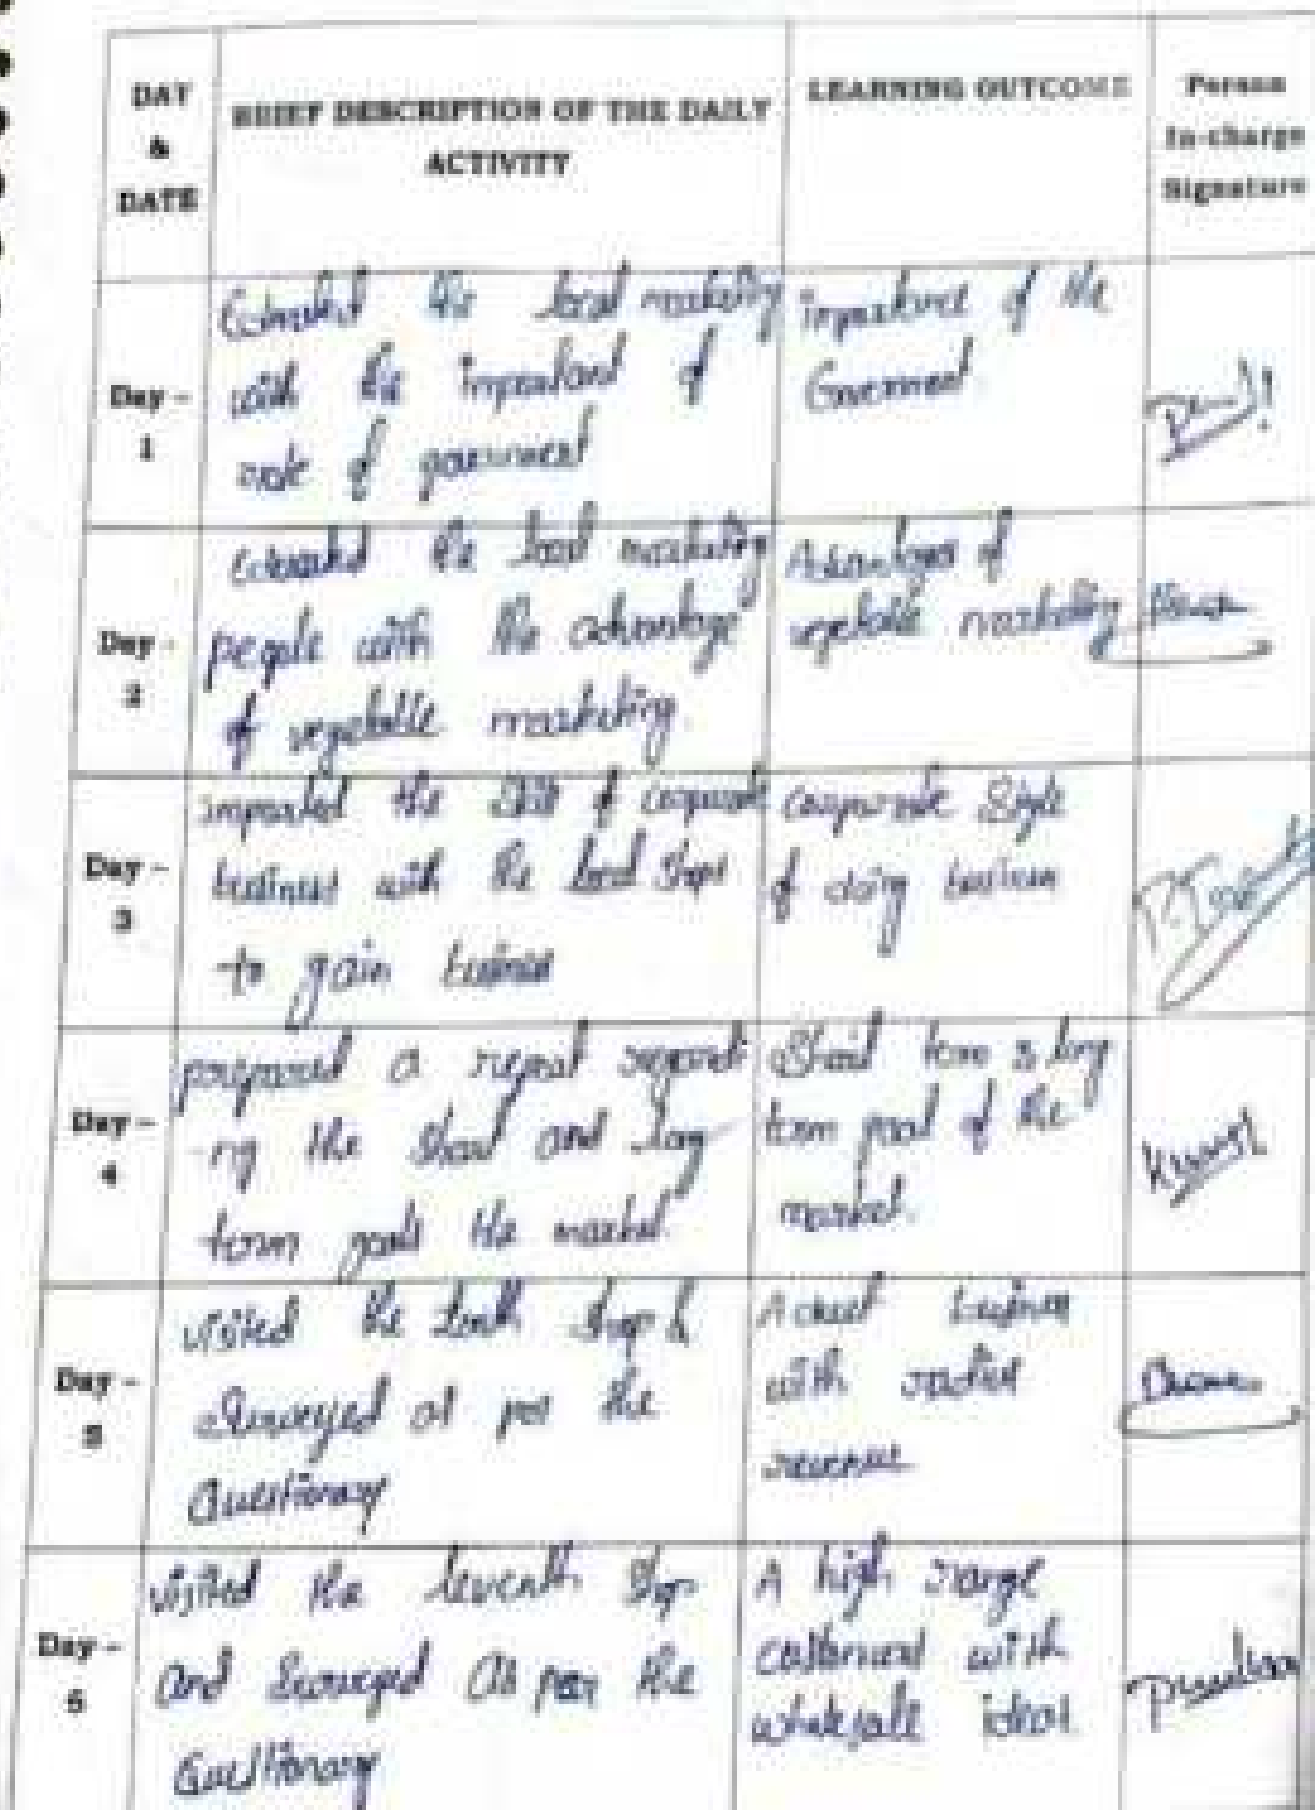 DAY
&
DATE
BRIEF DESCRIPTION OF THE DAILY
ACTIVITY
LEARNING OUTCOME
Person
In-charge
Signature
Day -
1
the local marketing
with the important of
role of government
importance of the
Government
Day -
2
the local marketing
people with the advantage
of vegetable marketing.
Advantages of
vegetable marketing
Day -
3
the of corporate
business with the local shops
to gain business
corporate style
of doing business
Day -
4
prepared a report regardi
-ng the short and long
term goals the market.
Short term & long
term goal of the
market.
Day -
5
visited the tenth shop &
surveyed as per the
Questionary
A business
with
revenue
Day -
6
visited the shop
and surveyed as per the
Questionary
A high range
with
wholesale ideas